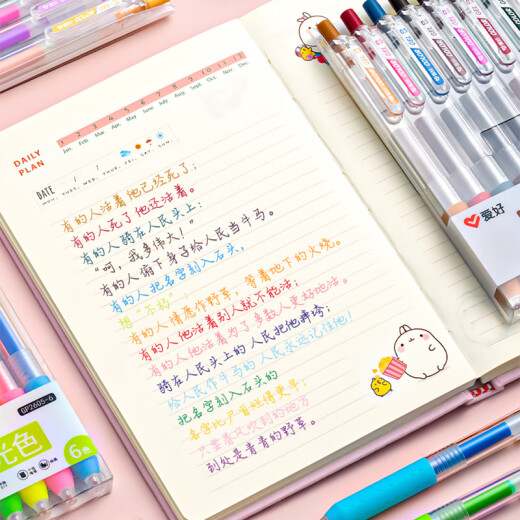 DAILY
PLAN
1 2 3 4 5 6 7 8 9 10 11 12
Jan. Feb. Mar. Apr. May. June July Aug. Sept. Oct. Nov. Dec.
DATE / /
MON. TUES. WED. THUR. FRI. SAT. SUN.
有的人活着他已经死了；
有的人死了他还活着。
有的人骑在人民头上：
“呵，我多伟大！”
有的人俯下身子给人民当牛马。
有的人把名字刻入石头，
想“不朽”；
有的人情愿作野草，等着地下的火烧。
有的人他活着别人就不能活；
有的人他活着为了多数人更好地活。
骑在人民头上的人民把他摔垮；
给人民作牛马的人民永远记住他！
把名字刻入石头的
名字比尸首烂得更早；
只要春风吹到的地方
到处是青青的野草。
爱好
GP2605-6
光色
6色